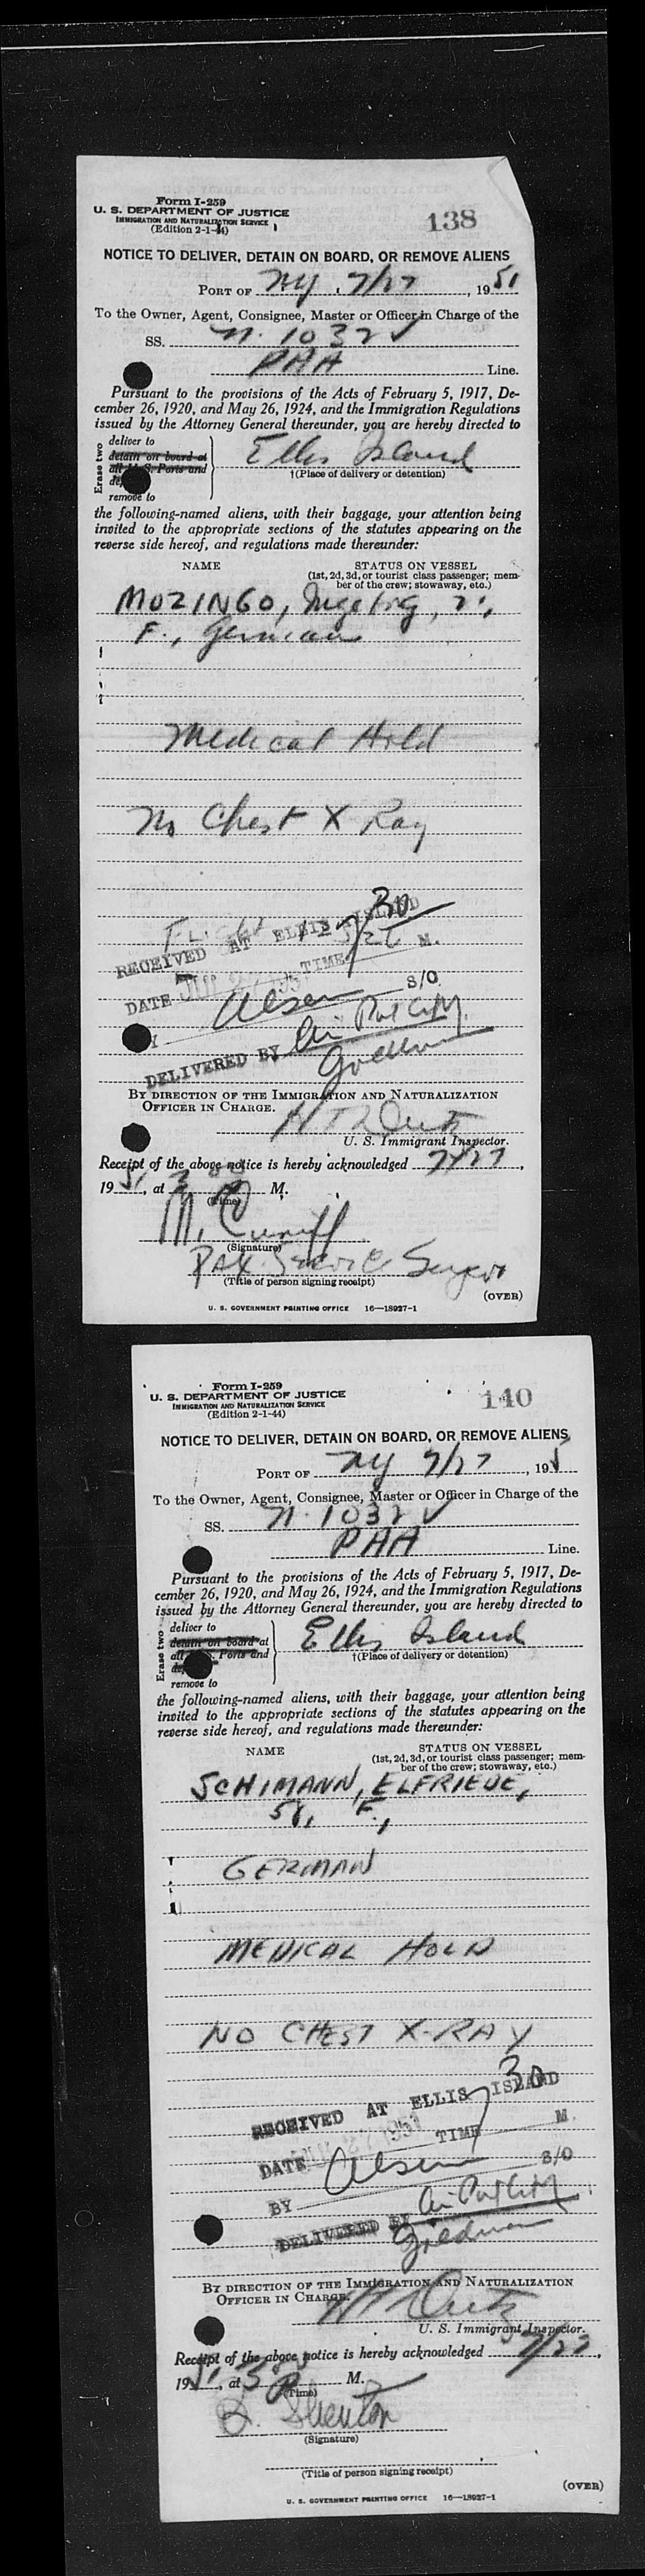 Form I-259
U. S. DEPARTMENT OF JUSTICE
IMMIGRATION AND NATURALIZATION SERVICE
(Edition 2-1-44)
138
NOTICE TO DELIVER, DETAIN ON BOARD, OR REMOVE ALIENS
PORT OF NY, 7/27, 1951
To the Owner, Agent, Consignee, Master or Officer in Charge of the
SS. N. 1032 V
PAA Line.
Pursuant to the provisions of the Acts of February 5, 1917, De-
cember 26, 1920, and May 26, 1924, and the Immigration Regulations
issued by the Attorney General thereunder, you are hereby directed to
Erase two
deliver to
detain on board at
all U. S. Ports and
remove to
Ellis Island
†(Place of delivery or detention)
the following-named aliens, with their baggage, your attention being
invited to the appropriate sections of the statutes appearing on the
reverse side hereof, and regulations made thereunder:
NAME STATUS ON VESSEL
(1st, 2d, 3d, or tourist class passenger; mem-
ber of the crew; stowaway, etc.)
MOZINGO,
F., German
Medical Hold
No Chest X Ray
RECEIVED AT ELLIS ISLAND
30
DATE JUL 27 1951 TIME M.
Olsen S/O
DELIVERED BY
BY DIRECTION OF THE IMMIGRATION AND NATURALIZATION
OFFICER IN CHARGE.
U. S. Immigrant Inspector.
Receipt of the above notice is hereby acknowledged 7/27,
1951, at M.
(Time)
(Signature)
Service
(Title of person signing receipt)
(OVER)
U. S. GOVERNMENT PRINTING OFFICE 16—18927-1
Form I-259
U. S. DEPARTMENT OF JUSTICE
IMMIGRATION AND NATURALIZATION SERVICE
(Edition 2-1-44)
140
NOTICE TO DELIVER, DETAIN ON BOARD, OR REMOVE ALIENS
PORT OF NY 7/27, 195
To the Owner, Agent, Consignee, Master or Officer in Charge of the
SS. N. 1032 V
PAA Line.
Pursuant to the provisions of the Acts of February 5, 1917, De-
cember 26, 1920, and May 26, 1924, and the Immigration Regulations
issued by the Attorney General thereunder, you are hereby directed to
Erase two
deliver to
detain on board at
all Ports and
remove to
Ellis Island
†(Place of delivery or detention)
the following-named aliens, with their baggage, your attention being
invited to the appropriate sections of the statutes appearing on the
reverse side hereof, and regulations made thereunder:
NAME STATUS ON VESSEL
(1st, 2d, 3d, or tourist class passenger; mem-
ber of the crew; stowaway, etc.)
SCHIMANN, ELFRIEDE,
F.,
GERMAN
MEDICAL HOLD
NO CHEST X-RAY
30
RECEIVED AT ELLIS ISLAND
DATE 27 1951 TIME M.
BY Olsen S/O
DELIVERED BY
BY DIRECTION OF THE IMMIGRATION AND NATURALIZATION
OFFICER IN CHARGE.
U. S. Immigrant Inspector.
Receipt of the above notice is hereby acknowledged 7/27,
1951, at M.
(Time)
(Signature)
(Title of person signing receipt)
(OVER)
U. S. GOVERNMENT PRINTING OFFICE 16—18927-1